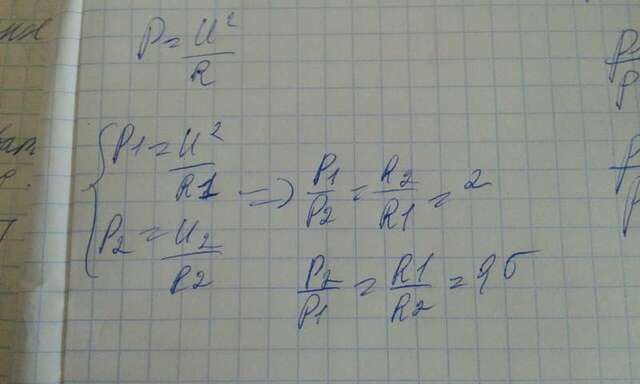 P = U² / R
P1 = U² / R1
P2 = U2 / R2
=> P1 / P2 = R2 / R1 = 2
P2 / P1 = R1 / R2 = 95